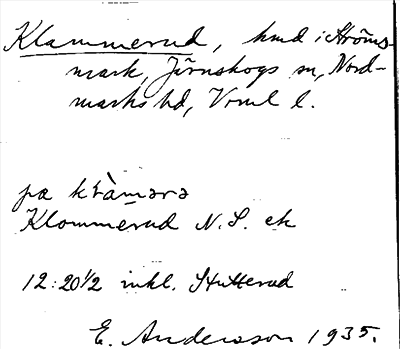 Klammerud, hmd i Ströms-
mark, Järnskogs sn, Nord-
marks hd, Vrml l.
pæ
Klommerud N.S. ek
12:20½ inkl. Stutterud
E. Andersson 1935.